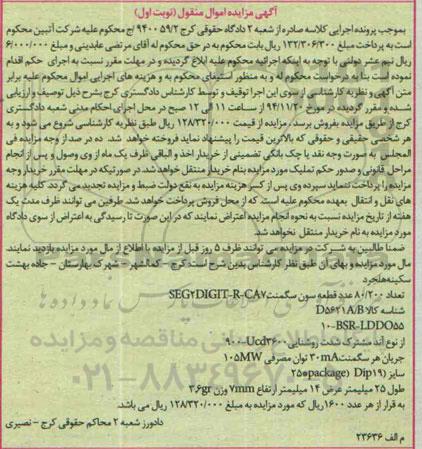 آگهی مزایده اموال منقول (نوبت اول)
بموجب پرونده اجرایی کلاسه صادره از شعبه ۲ دادگاه حقوقی کرج ۵۹/۲ ۹۴۰۰ اج محکوم علیه شرکت آتبین محکوم
است به پرداخت مبلغ ۱۳۲/۳۰۶/۳۰۰ ریال بابت محکوم به در حق محکوم له آقای مرتضی عابدینی و مبلغ ۶/۰۰۰/۰۰۰
ریال نیم عشر دولتی با توجه به اینکه اجرائیه محکوم علیه ابلاغ گردیده و در مهلت مقرر نسبت به اجرای حکم اقدام
ننموده است بنا به درخواست محکوم له و به منظور استیفای محکوم به و هزینه های اجرایی اموال محکوم علیه برابر
متن آگهی و نظریه کارشناسی از سوی این اجرا توقیف و توسط کارشناس دادگستری کرج بشرح ذیل توصیف و ارزیابی
شده و مقرر گردیده در مورخ ۹۴/۱۱/۲۰ از ساعت ۱۱ الی ۱۲ صبح در محل اجرای احکام مدنی شعبه دادگستری
کرج از طریق مزایده بفروش برسد. مزایده از قیمت ۱۲۸/۳۲۰/۰۰۰ ریال طبق نظریه کارشناسی شروع می شود و به
هر شخصی حقیقی و حقوقی که بالاترین قیمت را پیشنهاد نماید فروخته خواهد شد. ده در صد از وجه مزایده فی
المجلس به صورت وجه نقد یا چک بانکی تضمینی از خریدار اخذ و الباقی ظرف یک ماه از وی وصول و پس از انجام
مراحل قانونی و صدور حکم تملیک مورد مزایده بنام خریدار منتقل خواهد شد. در صورتیکه در مهلت مقرر خریدار وجه
مزایده را پرداخت ننماید سپرده وی پس از کسر هزینه مزایده به نفع دولت ضبط و مزایده تجدید می گردد. کلیه هزینه
های نقل و انتقال بعهده محکوم علیه است. که از محل فروش پرداخت خواهد شد. طرفین می توانند ظرف مدت یک
هفته از تاریخ مزایده نسبت به نحوه انجام مزایده اعتراض نمایند که در این صورت تا رسیدگی به اعتراض از سوی دادگاه
مورد مزایده به نام خریدار منتقل نخواهد شد.
ضمنا طالبین به شرکت در مزایده می توانند ظرف ۵ روز قبل از مزایده با اطلاع از مال مورد مزایده بازدید نمایند.
مال مورد مزایده و بهای آن طبق نظر کارشناس بدین شرح است: کرج - کمالشهر - شهرک بهارستان - جاده بهشت
سکینه
تعداد ۸۰/۲۰۰ عدد قطعه سون سگمنت SEG2DIGIT-R-CA7
شناسه کالا D5621A/B
10-BSR-LDD055
از نوع آند مشترک شدت روشنایی 900-Ucd3600
جریان هر سگمنت 30mA توان مصرفی 105MW
سایز (package) Dip19*25
طول ۲۵ میلیمتر عرض ۱۴ میلیمتر ارتفاع 7mm وزن 3,6gr
به قرار از هر عدد ۱۶۰۰ ریال که مورد مزایده به مبلغ ۱۲۸/۳۲۰/۰۰۰ ریال می باشد.
دادورز شعبه ۲ محاکم حقوقی کرج - نصیری
م الف ۲۳۶۳۶
۰۲۱-۸۸۳۴۹۶۷۰